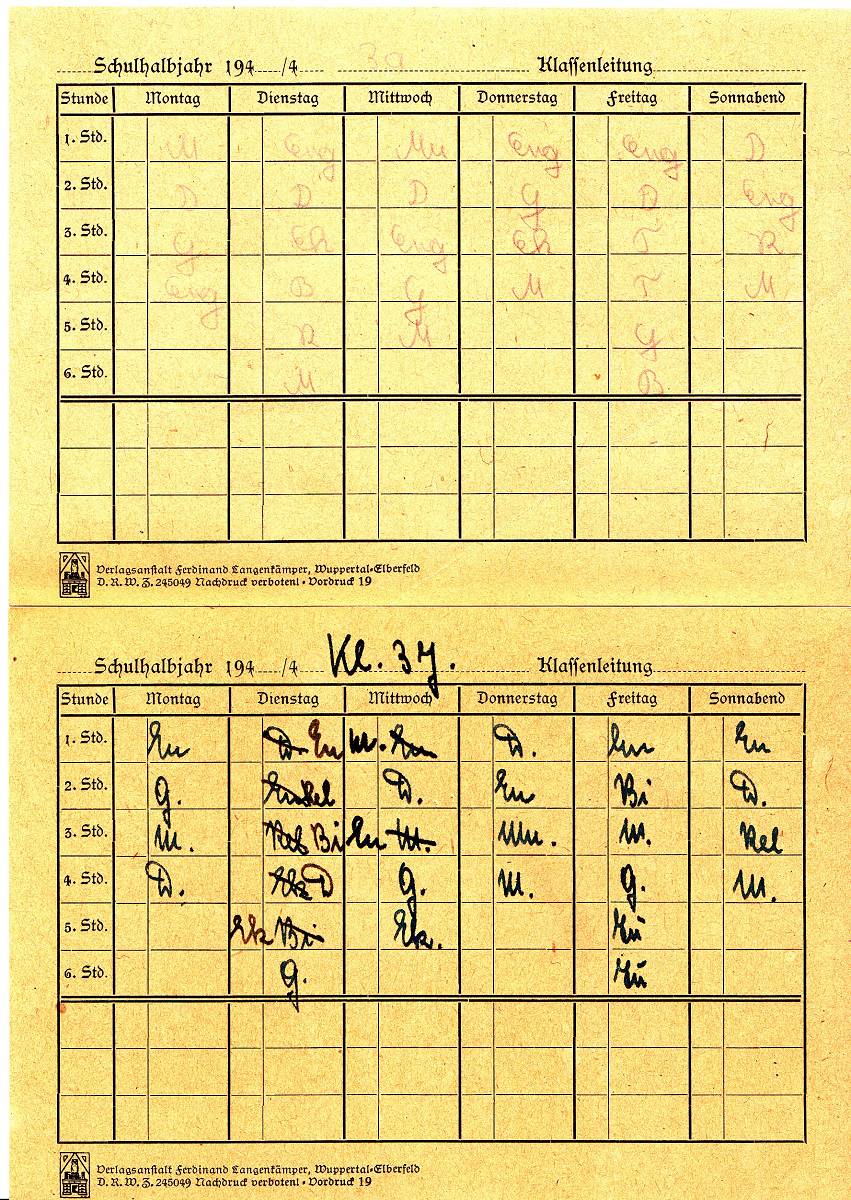 Schulhalbjahr 194 /4 3a Klassenleitung
Stunde Montag Dienstag Mittwoch Donnerstag Freitag Sonnabend
1. Std. M Eng Mu Eng Eng D
2. Std. D D D G D Eng
3. Std. G Ek Eng Ek T R
4. Std. Eng B G M T M
5. Std. R M G
6. Std. M B
Verlagsanstalt Ferdinand Langenkämper, Wuppertal-Elberfeld
D. R. W. Z. 245049 Nachdruck verboten! • Vordruck 19
Schulhalbjahr 194 /4 Kl. 3 Klassenleitung
Stunde Montag Dienstag Mittwoch Donnerstag Freitag Sonnabend
1. Std. En D. En M. En D. En En
2. Std. G. En Rel D. En Bi D.
3. Std. M. Rel Bi En M. Mu. M. Rel
4. Std. D. Ek D G. M. G. M.
5. Std. Ek Bi Ek. Tu
6. Std. G. Tu
Verlagsanstalt Ferdinand Langenkämper, Wuppertal-Elberfeld
D. R. W. Z. 245049 Nachdruck verboten! • Vordruck 19